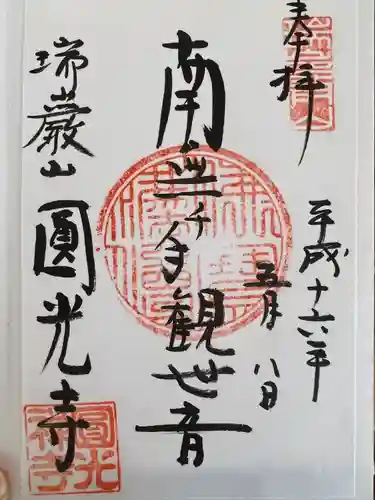 奉拝
平成十六年
五月八日
南無千手観世音
瑞巌山
圓光寺
圓光
禅寺